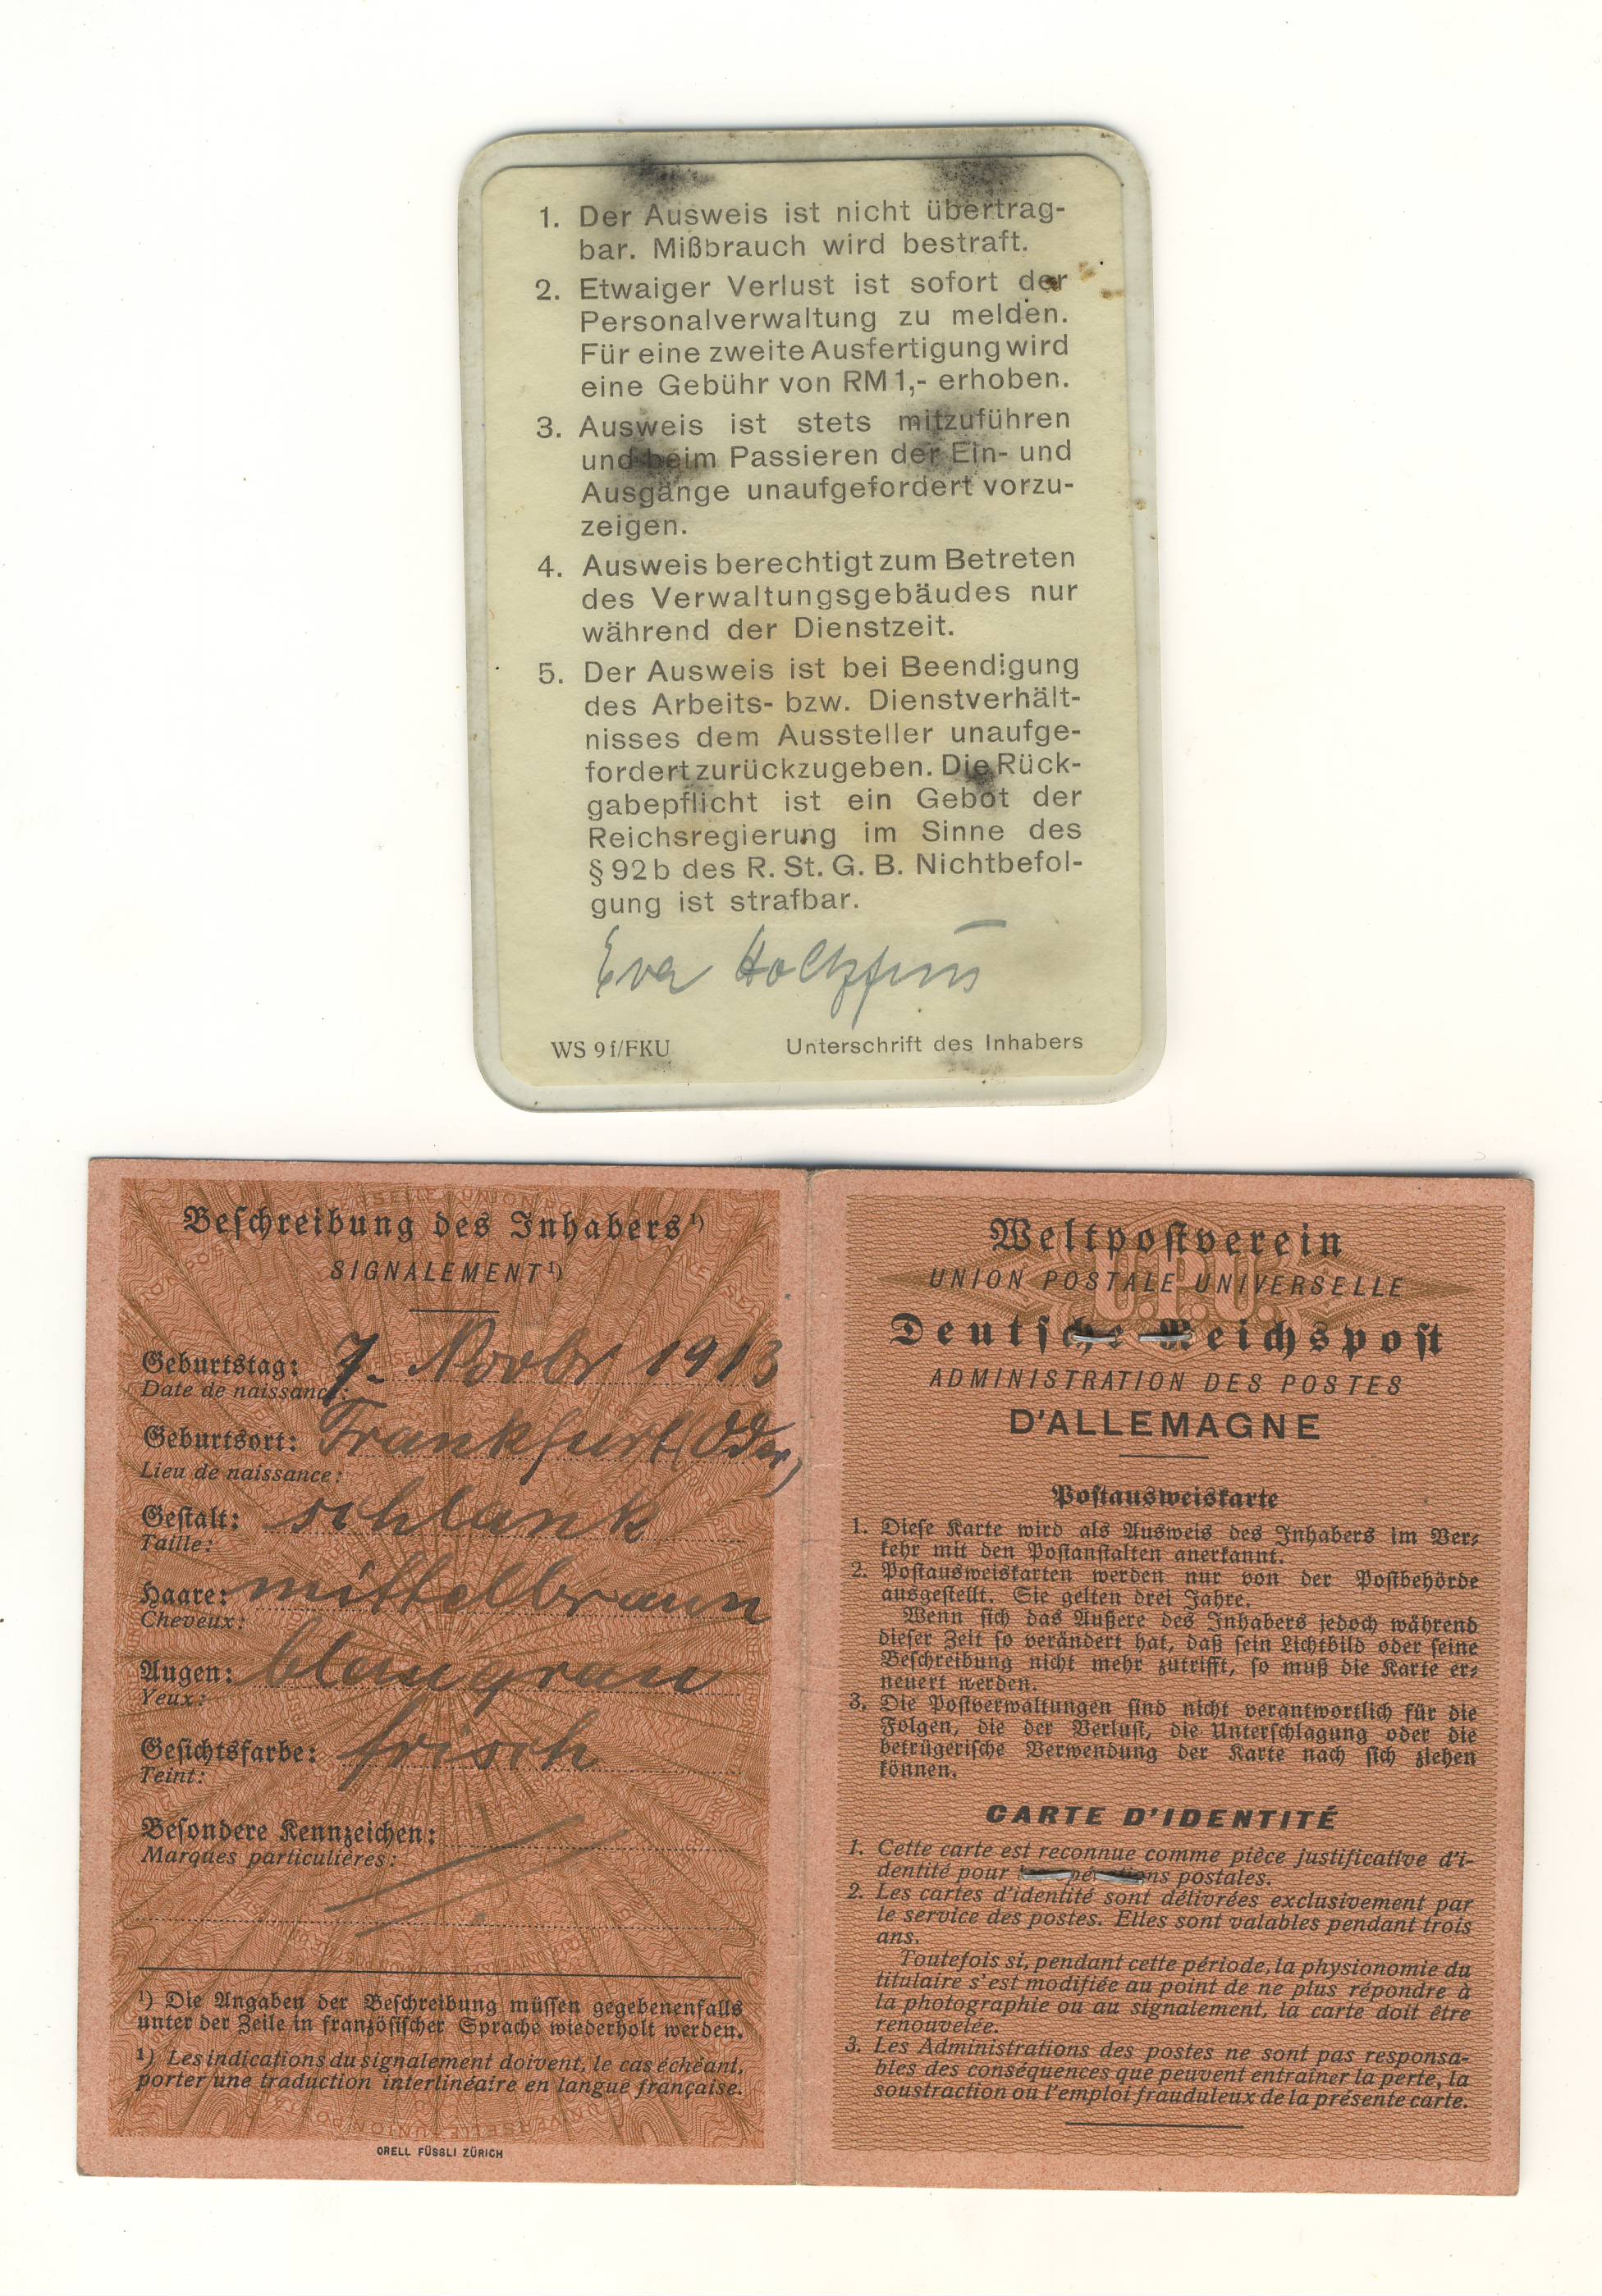 1. Der Ausweis ist nicht übertrag-
bar. Mißbrauch wird bestraft.
2. Etwaiger Verlust ist sofort der
Personalverwaltung zu melden.
Für eine zweite Ausfertigung wird
eine Gebühr von RM 1,- erhoben.
3. Ausweis ist stets mitzuführen
und beim Passieren der Ein- und
Ausgänge unaufgefordert vorzu-
zeigen.
4. Ausweis berechtigt zum Betreten
des Verwaltungsgebäudes nur
während der Dienstzeit.
5. Der Ausweis ist bei Beendigung
des Arbeits- bzw. Dienstverhält-
nisses dem Aussteller unaufge-
fordert zurückzugeben. Die Rück-
gabepflicht ist ein Gebot der
Reichsregierung im Sinne des
§ 92b des R. St. G. B. Nichtbefol-
gung ist strafbar.
Eva
WS 9f/FKU Unterschrift des Inhabers
Beschreibung des Inhabers¹)
SIGNALEMENT¹)
Geburtstag: 7. Novbr 1913
Date de naissance:
Geburtsort: Frankfurt (Oder)
Lieu de naissance:
Gestalt: schlank
Taille:
Haare: mittelbraun
Cheveux:
Augen: blaugrau
Yeux:
Gesichtsfarbe: frisch
Teint:
Besondere Kennzeichen:
Marques particulières:
¹) Die Angaben der Beschreibung müssen gegebenenfalls
unter der Zeile in französischer Sprache wiederholt werden.
¹) Les indications du signalement doivent, le cas échéant,
porter une traduction interlinéaire en langue française.
ORELL FÜSSLI ZÜRICH
Weltpostverein
UNION POSTALE UNIVERSELLE
U.P.U.
Deutsche Reichspost
ADMINISTRATION DES POSTES
D'ALLEMAGNE
Postausweiskarte
1. Diese Karte wird als Ausweis des Inhabers im Ver-
kehr mit den Postanstalten anerkannt.
2. Postausweiskarten werden nur von der Postbehörde
ausgestellt. Sie gelten drei Jahre.
Wenn sich das Äußere des Inhabers jedoch während
dieser Zeit so verändert hat, daß sein Lichtbild oder seine
Beschreibung nicht mehr zutrifft, so muß die Karte er-
neuert werden.
3. Die Postverwaltungen sind nicht verantwortlich für die
Folgen, die der Verlust, die Unterschlagung oder die
betrügerische Verwendung der Karte nach sich ziehen
können.
CARTE D'IDENTITÉ
1. Cette carte est reconnue comme pièce justificative d'i-
dentité pour les opérations postales.
2. Les cartes d'identité sont délivrées exclusivement par
le service des postes. Elles sont valables pendant trois
ans.
Toutefois si, pendant cette période, la physionomie du
titulaire s'est modifiée au point de ne plus répondre à
la photographie ou au signalement, la carte doit être
renouvelée.
3. Les Administrations des postes ne sont pas responsa-
bles des conséquences que peuvent entraîner la perte, la
soustraction ou l'emploi frauduleux de la présente carte.